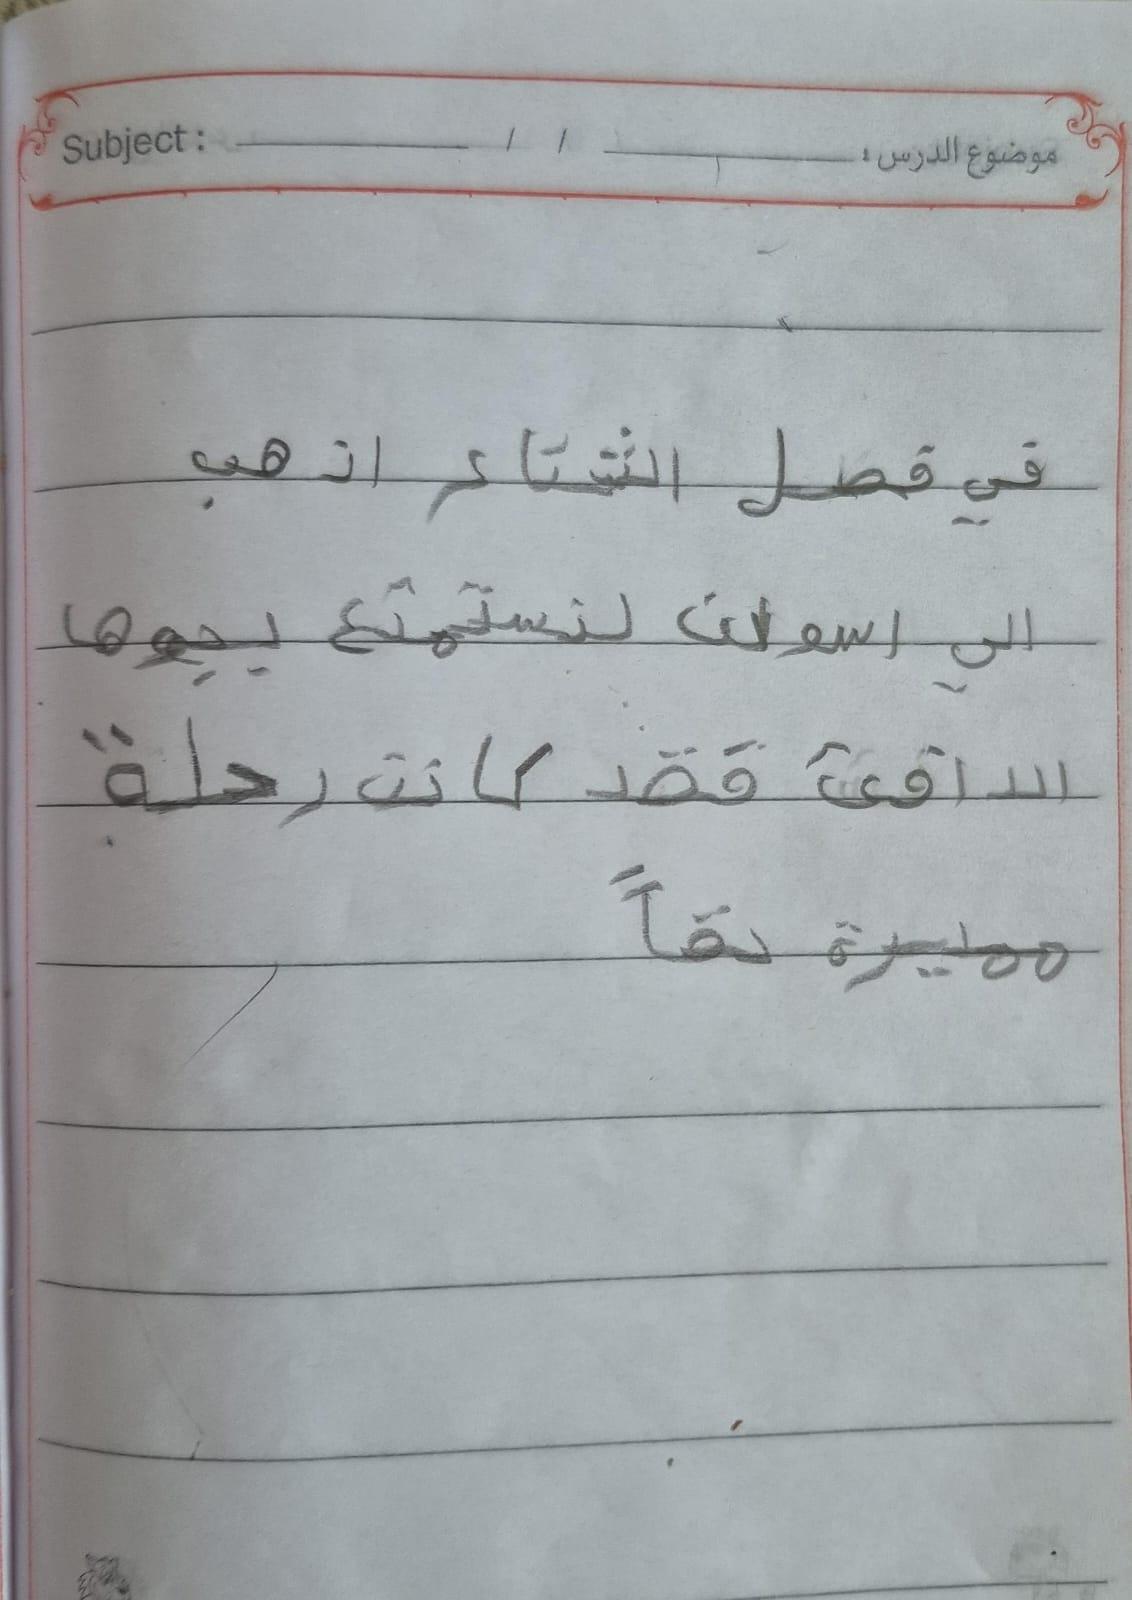 Subject : / / موضوع الدرس :
في فصل الشتاء اذهب
الي اسوان لنستمتع بجوها
الدافئ فقد كانت رحلة
مميزة حقاً